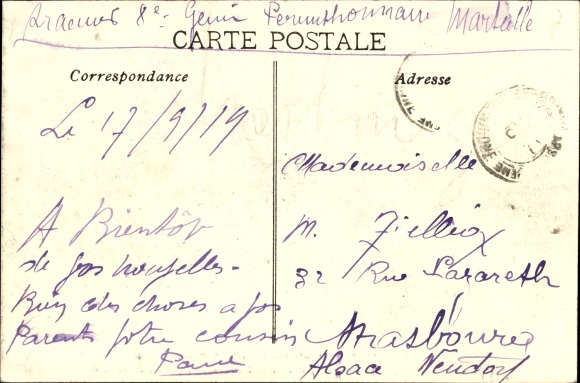 8e Genie Marseille
CARTE POSTALE
Correspondance
Adresse
Le 17/9/19
Mademoiselle
A Bientôt
M. Fellix
de vos nouvelles.
32 Rue Lazareth
Bien des choses a vos
Parents votre cousin
Strasbourg
Alsace Neudorf